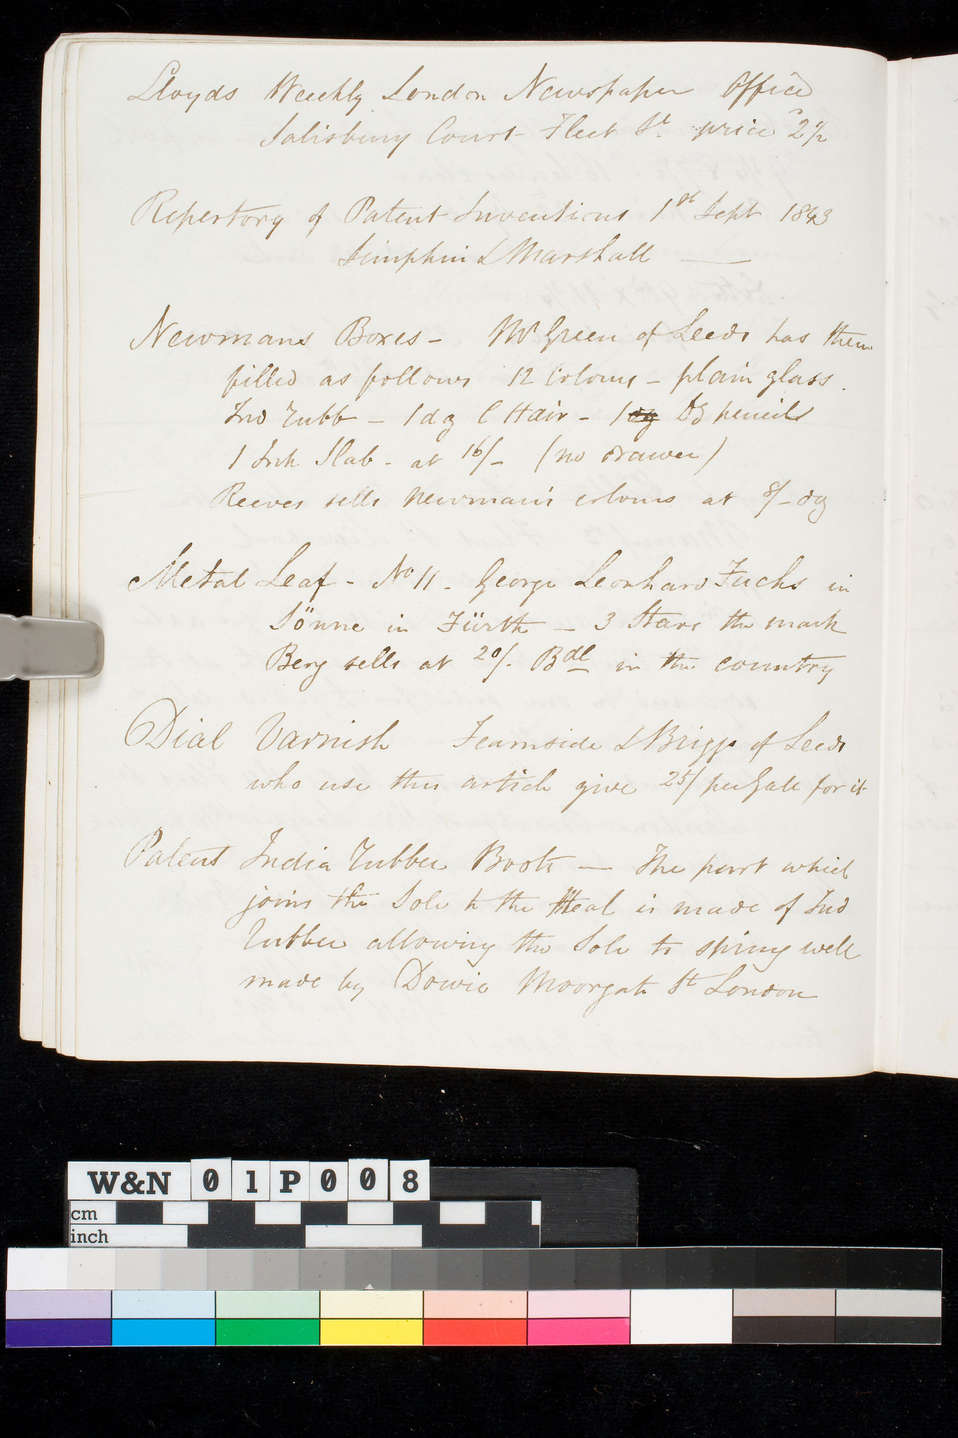 Lloyds Weekly London Newspaper Office
Salisbury Court Fleet St price 2½
Repertory of Patent Inventions 1st Sept 1843
Simpkin & Marshall —
Newmans Boxes – Mr Green of Leeds has them
filled as follows 12 Colours – plain glass.
Ind Rubb – 1 dz C Hair – 1 dz Do pencils
1 Ink Slab – at 16/– (no drawer)
Reeves sells Newman's colours at 8/– dz
Metal Leaf – No 11 – George Leonhard Fuchs in
Sönne in Fürth – 3 Stars the mark
Berg sells at 20/– Bdl in the country
Dial Varnish Fearnside & Briggs of Leeds
who use this article give 25/ per Gall for it
Patent India Rubber Boots — The part which
joins the Sole to the Heal is made of Ind
Rubber allowing the Sole to spring well
made by Dowie Moorgate St London
W&N 01P008
cm
inch